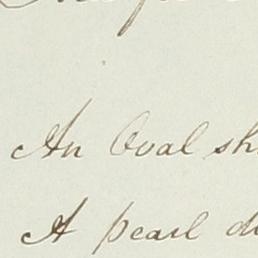 An Oval sh
A pearl d